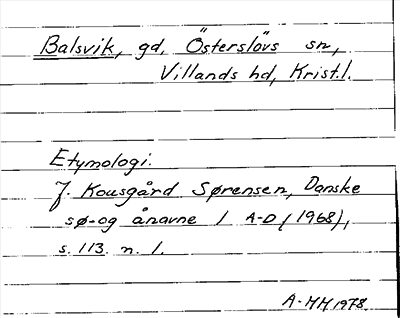 Balsvik, gd, Österslövs sn,
Villands hd, Krist.l.
Etymologi:
J. Kousgård Sørensen, Danske
sø- og ånavne 1 A-D (1968),
s. 113. n. 1.
A-HH 1978.